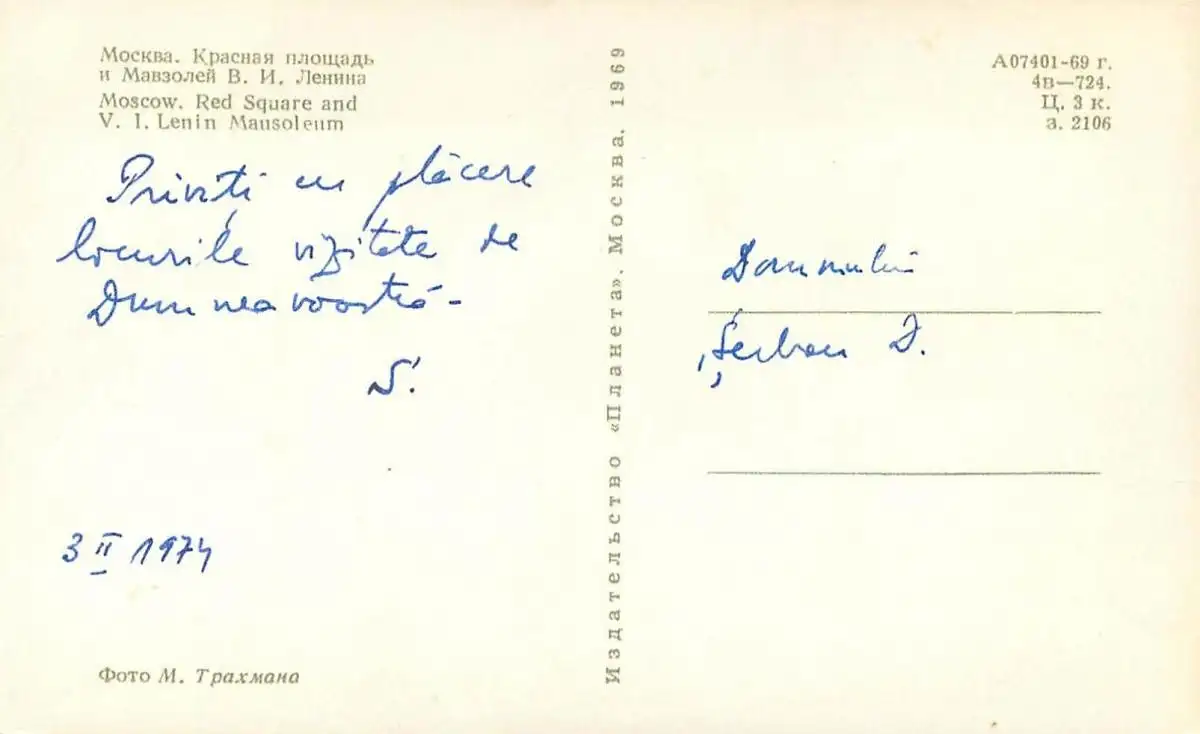 Москва. Красная площадь
и Мавзолей В. И. Ленина
Moscow. Red Square and
V. I. Lenin Mausoleum
Priviți cu plăcere
locurile vizitate de
Dumneavoastră-
S.
3 II 1974
Фото М. Трахмана
Издательство «Планета». Москва. 1969
А07401-69 г.
4в—724.
Ц. 3 к.
з. 2106
Domnului
Șerban D.